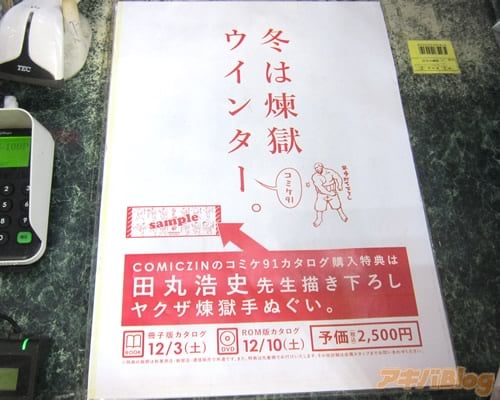 冬は煉獄
ウインター。
コミケ91
sample
COMICZINのコミケ91カタログ購入特典は
田丸浩史先生描き下ろし
ヤクザ煉獄手ぬぐい。
冊子版カタログ
BOOK
12/3(土)
ROM版カタログ
DVD
12/10(土)
予価(税込)2,500円
TEC
アキバBlog